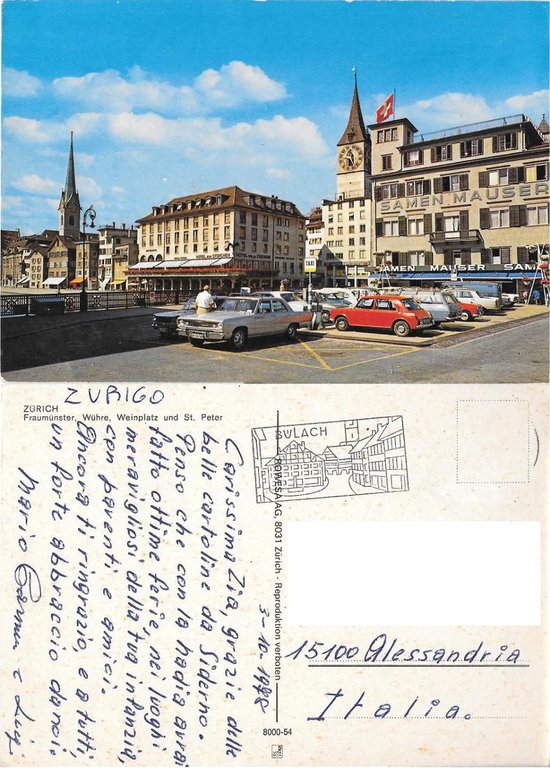 SAMEN MAUSER
SAMEN MAUSER SAM
TAXI
ZURIGO
ZÜRICH
Fraumünster, Wühre, Weinplatz und St. Peter
BÜLACH
ROWESA AG, 8031 Zürich - Reproduktion verboten
8000-54
Carissima Zia, grazie delle
belle cartoline da Siderno.
Penso che con la Nadia avrai
fatto ottime ferie, nei luoghi
meravigliosi della tua infanzia,
con parenti e amici.
Ancora ti ringrazio, e a tutti,
un forte abbraccio da noi.
Mario Carmen e Luigi
3-10-
15100 Alessandria
Italia.